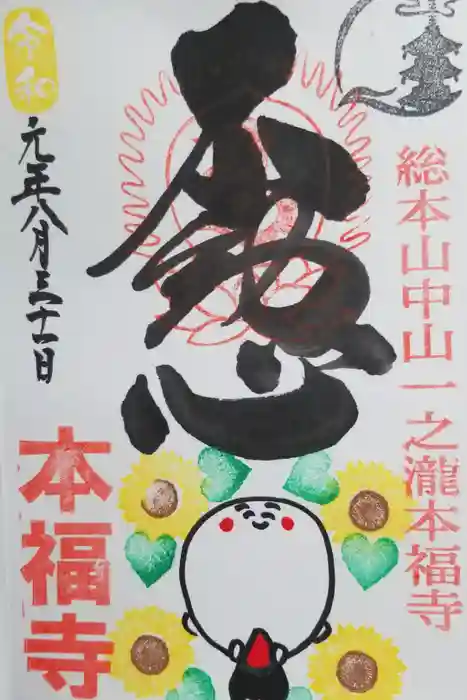 総本山中山一之瀧本福寺
令和
元年八月三十一日
本福寺